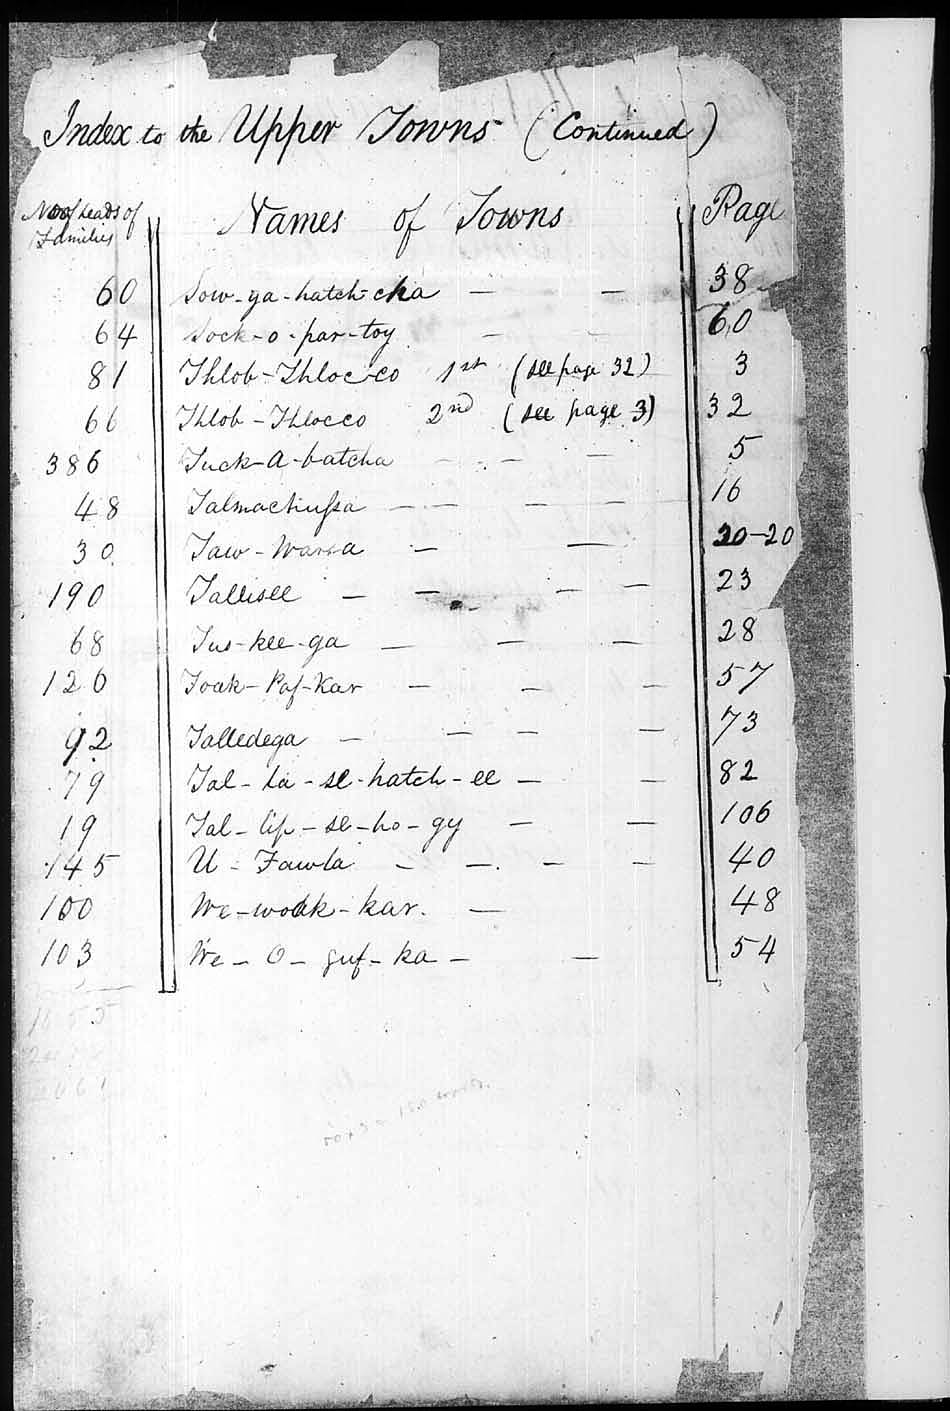 Index to the Upper Towns (Continued)
No of heads of Families || Names of Towns || Page
60 Sow-ga-hatch-cha — — 38
64 Sock-o-par-toy — — 60
81 Thlob-Thlocco 1st (see page 32) 3
66 Thlob-Thlocco 2nd (see page 3) 32
386 Tuck-A-batcha — — — 5
48 Talmachussa — — — — 16
30 Taw-warsa — — 20-20
190 Tallisee — — — — 23
68 Tus-kee-ga — — — 28
126 Toak-Paf-Kar — — — 57
92 Talledega — — — — 73
79 Tal-la-se-hatch-ee — — 82
19 Tal-lip-se-ho-gy — — 106
145 U-Fawla — — — — 40
100 We-woak-kar. — 48
103 We-O-guf-ka — — 54
1855